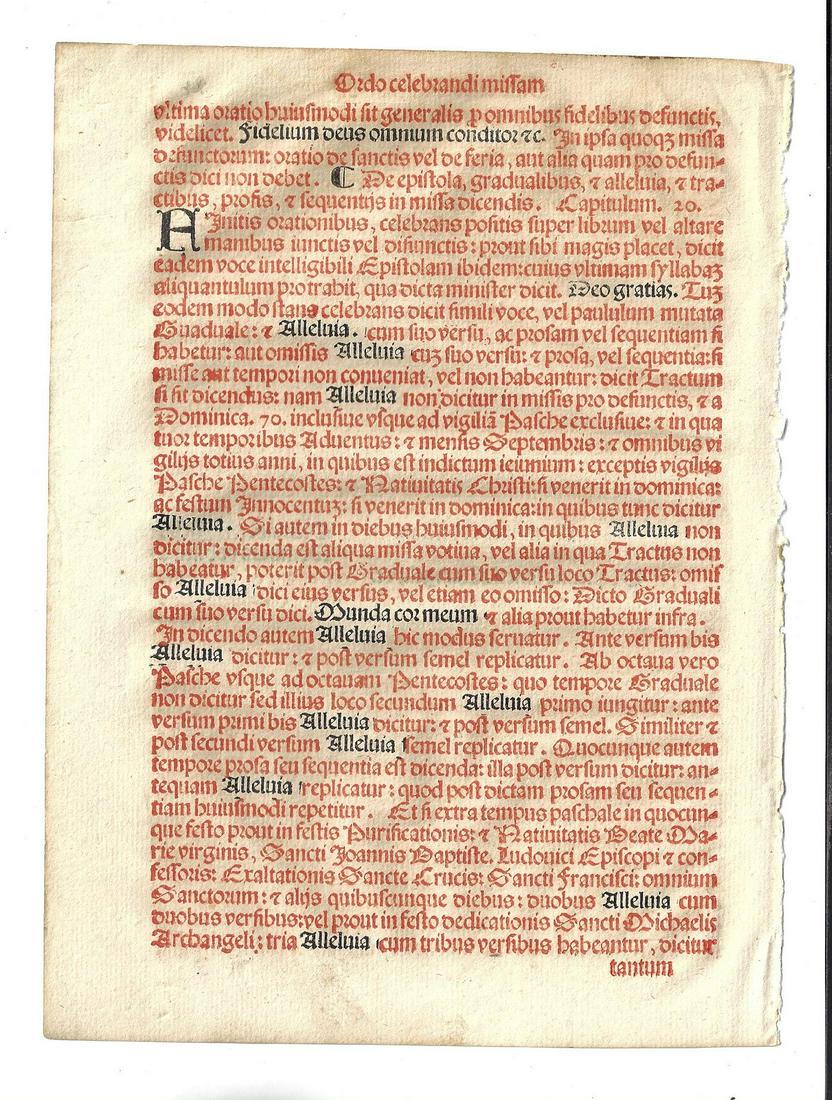 Ordo celebrandi missam
vltima oratio huiusmodi sit generalis ꝓ omnibus fidelibus defunctis,
videlicet. Fidelium deus omnium conditor ⁊c. In ipsa quoqꝫ missa
defunctorum: oratio de sanctis vel de feria, aut alia quam pro defun-
ctis dici non debet. ¶ De epistola, gradualibus, ⁊ alleluia, ⁊ tra-
ctibus, prosis, ⁊ sequentijs in missa dicendis. Capitulum. 20.
FInitis orationibus, celebrans positis super librum vel altare
manibus iunctis vel disiunctis: prout sibi magis placet, dicit
eadem voce intelligibili Epistolam ibidem: cuius vltimam syllabaꝫ
aliquantulum protrahit, qua dicta minister dicit. Deo gratias. Tuꝫ
eodem modo stans celebrans dicit simili voce, vel paululum mutata
Graduale: ⁊ Alleluia. cum suo versu, ac prosam vel sequentiam si
habetur: aut omissis Alleluia cuꝫ suo versu: ⁊ prosa, vel sequentia: si
misse aut tempori non conueniat, vel non habeantur: dicit Tractum
si sit dicendus: nam Alleluia non dicitur in missis pro defunctis, ⁊ a
Dominica. 70. inclusiue vsque ad vigiliā Pasche exclusiue: ⁊ in qua
tuor temporibus Aduentus: ⁊ mensis Septembris: ⁊ omnibus vi
gilijs totius anni, in quibus est indictum ieiunium: exceptis vigilijs
Pasche Pentecostes: ⁊ Natiuitatis Christi: si venerit in dominica:
ac festum Innocentuꝫ: si venerit in dominica: in quibus tunc dicitur
Alleluia. Si autem in diebus huiusmodi, in quibus Alleluia non
dicitur: dicenda est aliqua missa votiua, vel alia in qua Tractus non
habeatur, poterit post Graduale cum suo versu loco Tractus: omis
so Alleluia dici eius versus, vel etiam eo omisso: Dicto Graduali
cum suo versu dici. Munda cor meum ⁊ alia prout habetur infra.
In dicendo autem Alleluia hic modus seruatur. Ante versum bis
Alleluia dicitur: ⁊ post versum semel replicatur. Ab octaua vero
Pasche vsque ad octauam Pentecostes: quo tempore Graduale
non dicitur sed illius loco secundum Alleluia primo iungitur: ante
versum primi bis Alleluia dicitur: ⁊ post versum semel. Similiter ⁊
post secundi versum Alleluia semel replicatur. Quocunque autem
tempore prosa seu sequentia est dicenda: illa post versum dicitur: an-
tequam Alleluia replicatur: quod post dictam prosam seu sequen-
tiam huiusmodi repetitur. Et si extra tempus paschale in quocun-
que festo prout in festis Purificationis: ⁊ Natiuitatis Beate Ma-
rie virginis, Sancti Joannis Baptiste. Ludouici Episcopi ⁊ con-
fessoris: Exaltationis Sancte Crucis: Sancti Francisci: omnium
Sanctorum: ⁊ alijs quibuscunque diebus: duobus Alleluia cum
duobus versibus: vel prout in festo dedicationis Sancti Michaelis
Archangeli: tria Alleluia cum tribus versibus habeantur, dicitur
tantum